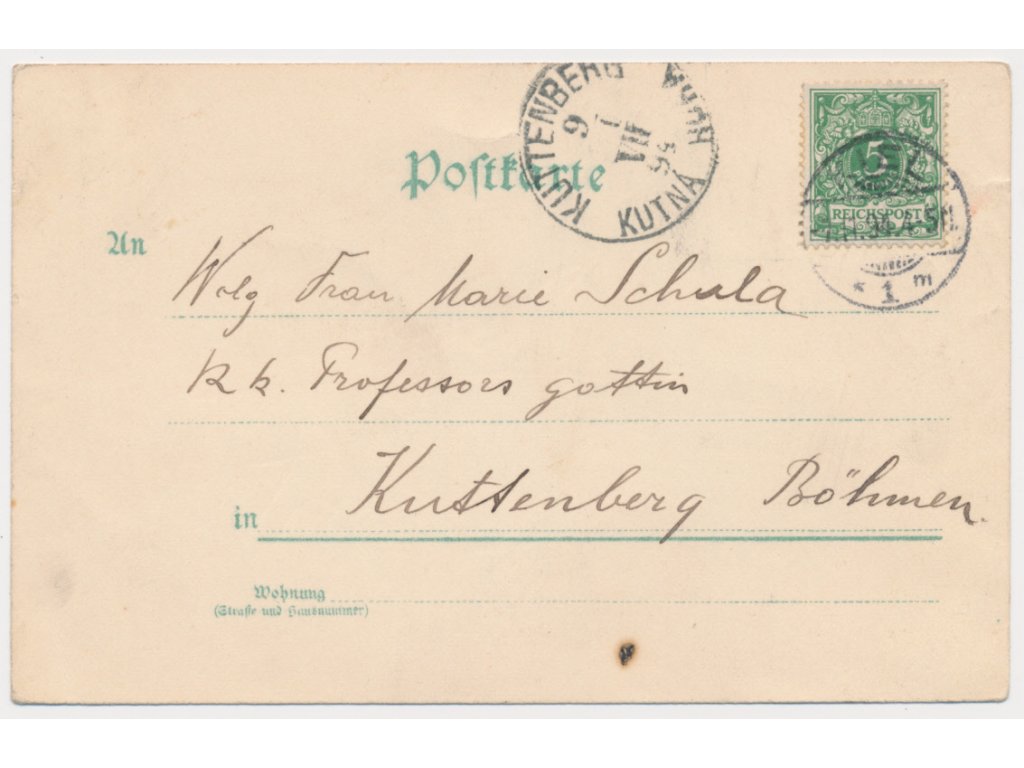 KUTTENBERG
9
1
VII
95
KUTNÁ HORA
Postkarte
5
REICHSPOST
* 1 m
An
Wolg Frau Marie Schula
k k. Professors gattin
Kuttenberg Böhmen.
in
Wohnung
(Straße und Hausnummer)